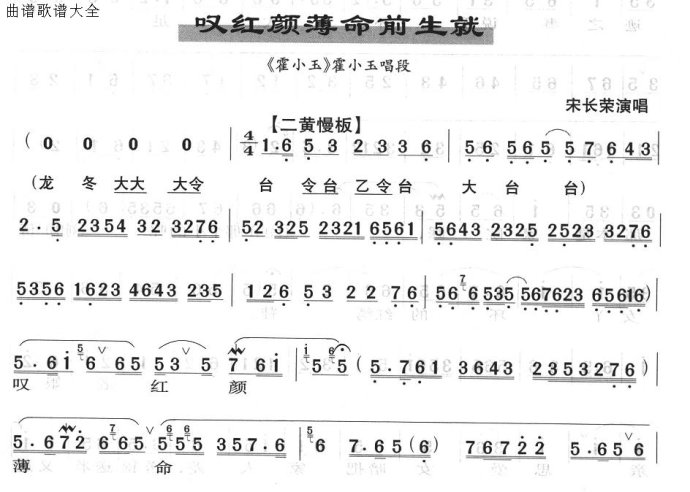 曲谱歌谱大全
叹红颜薄命前生就
《霍小玉》霍小玉唱段
宋长荣演唱
【二黄慢板】
( 0 0 0 0 | 4/4 1·6 5 3 2 3 3 6 | 5 6 5 6 5 5 7 6 4 3 |
(龙 冬 大大 大令 台 令台 乙令台 大 台 台)
2·5 2354 32 3276 | 52 325 2321 6561 | 5643 2325 2523 3276 |
5356 1623 4643 235 | 126 53 22 76 | 56 6 535 567623 65616) |
5·6i 6 65 53 5 7 6i | 5 5 (5·761 3643 2353 3276 |
叹 红 颜
5·672 665 555 357·6 | 6 7·65(6) 76722 5·656 |
薄 命